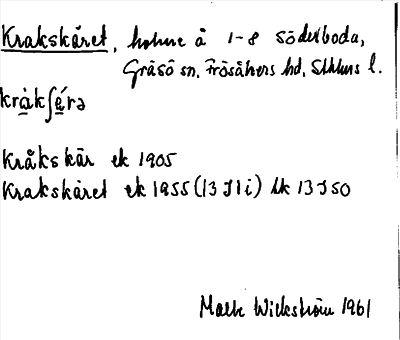 Krakskäret, holme å 1-8 Söderboda,
Gräsö sn, Frösåkers hd, Sthlms l.
kràkʃæ̀rə
Kråkskär ek 1905
Krakskäret ek 1955 (13 J 1 i) tk 13 J SO
Mats Wickström 1961